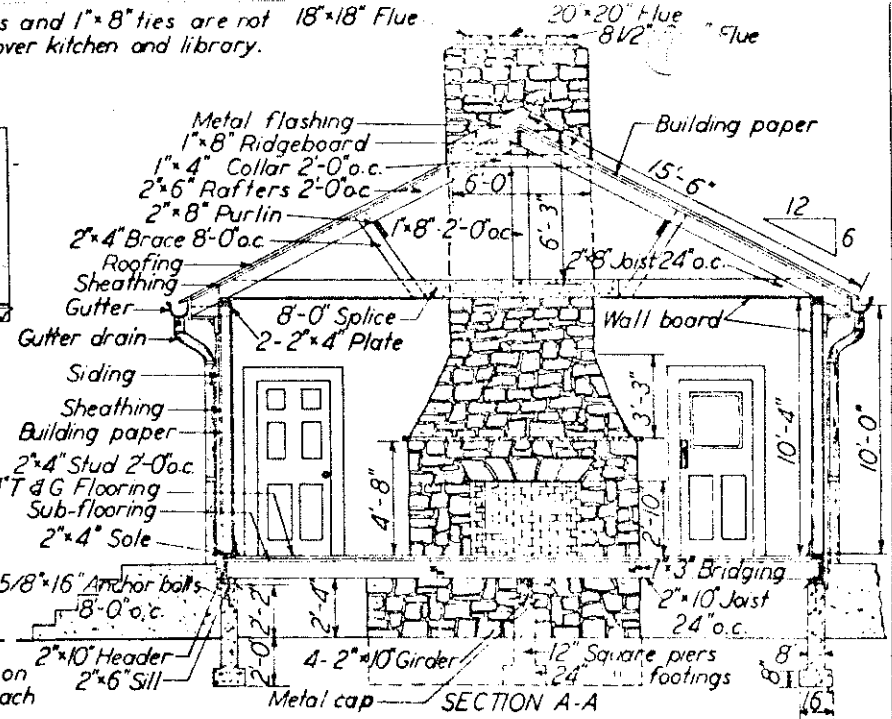 s and 1"×8" ties are not
over kitchen and library.
18"×18" Flue
20"×20" Flue
8 1/2" " Flue
Metal flashing
1"×8" Ridgeboard
1"×4" Collar 2'-0" o.c.
2"×6" Rafters 2'-0" o.c.
2"×8" Purlin
2"×4" Brace 8'-0" o.c.
Roofing
Sheathing
Gutter
Gutter drain
Siding
Sheathing
Building paper
2"×4" Stud 2'-0" o.c.
1" T & G Flooring
Sub-flooring
2"×4" Sole
5/8"×16" Anchor bolts
8'-0" o.c.
2"×10" Header
2"×6" Sill
on
ach
Building paper
15'-6"
12
6
6'-0"
6'-3"
1"×8"-2'-0" o.c.
2"×8" Joist 24" o.c.
8'-0" Splice
2-2"×4" Plate
Wall board
3'-3"
4'-8"
2'-10
10'-4"
10'-0"
2'-2"
2'-4"
2'-0"
1"×3" Bridging
2"×10" Joist
24" o.c.
4-2"×10" Girder
12" Square piers
24" footings
Metal cap
8"
8"
16"
SECTION A-A